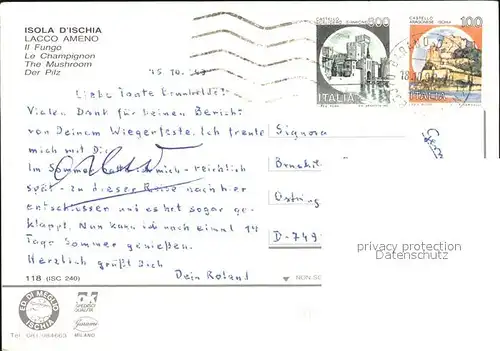 ISOLA D'ISCHIA
LACCO AMENO
Il Fungo
Le Champignon
The Mushroom
Der Pilz
15.10.
CASTELLO
800
ITALIA
CASTELLO
ARAGONESE - ISCHIA
100
ITALIA
18.10.
Liebe Tante
Vielen Dank für Deinen Bericht
von Deinem Wiegenfeste. Ich freute
mich mit Dir.
Im Sommer hatte ich mich - reichlich
spät - zu dieser Reise nach hier
entschlossen und es hat sogar ge-
klappt. Nun kann ich noch einmal 14
Tage Sommer genießen.
Herzlich grüßt Dich
Dein Roland
Signora
D-749
privacy protection
Datenschutz
118 (ISC 240)
NON
ED. DI MEGLIO
ISCHIA
Tel. 081/984663
MILANO